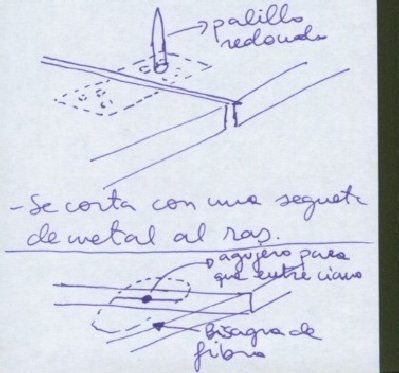 palillo
redondo
- Se corta con una segueta
de metal al ras.
agujero para
que entre ciano
Bisagra de
fibra